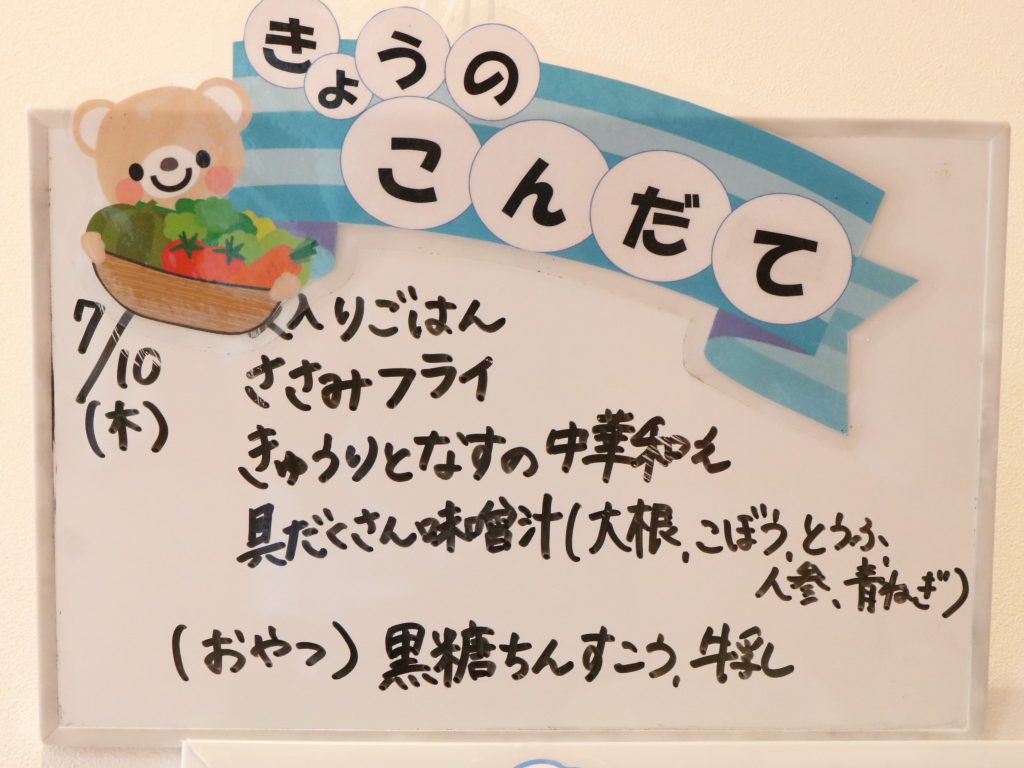 きょうの
こんだて
7/10
(木)
入りごはん
ささみフライ
きゅうりとなすの中華和え
具だくさん味噌汁(大根、こぼう、とうふ、
人参、青ねぎ)
(おやつ)黒糖ちんすこう、牛乳